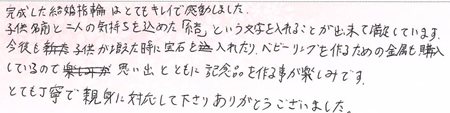 完成した結婚指輪はとてもキレイで感動しました。
子供の名前と二人の気持ちを込めた「結」という文字を入れることが出来て満足しています。
今後も子供が増えた時に宝石を入れたり、ベビーリングを作るための金属も購入
しているので思い出とともに記念品を作る事が楽しみです。
とても丁寧で親身に対応して下さりありがとうございました。